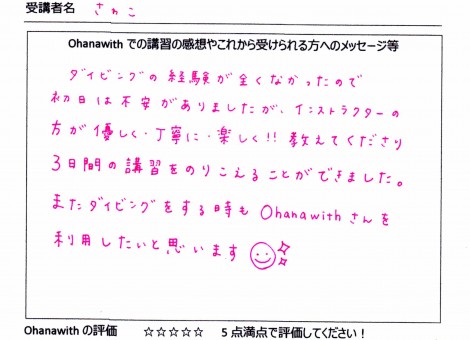 受講者名 さわこ
Ohanawith での講習の感想やこれから受けられる方へのメッセージ等
ダイビングの経験が全くなかったので
初日は不安がありましたが、インストラクターの
方が優しく・丁寧に・楽しく!! 教えてくださり
3日間の講習をのりこえることができました。
またダイビングをする時も Ohanawith さんを
利用したいと思います
Ohanawith の評価 ☆☆☆☆☆ 5 点満点で評価してください!